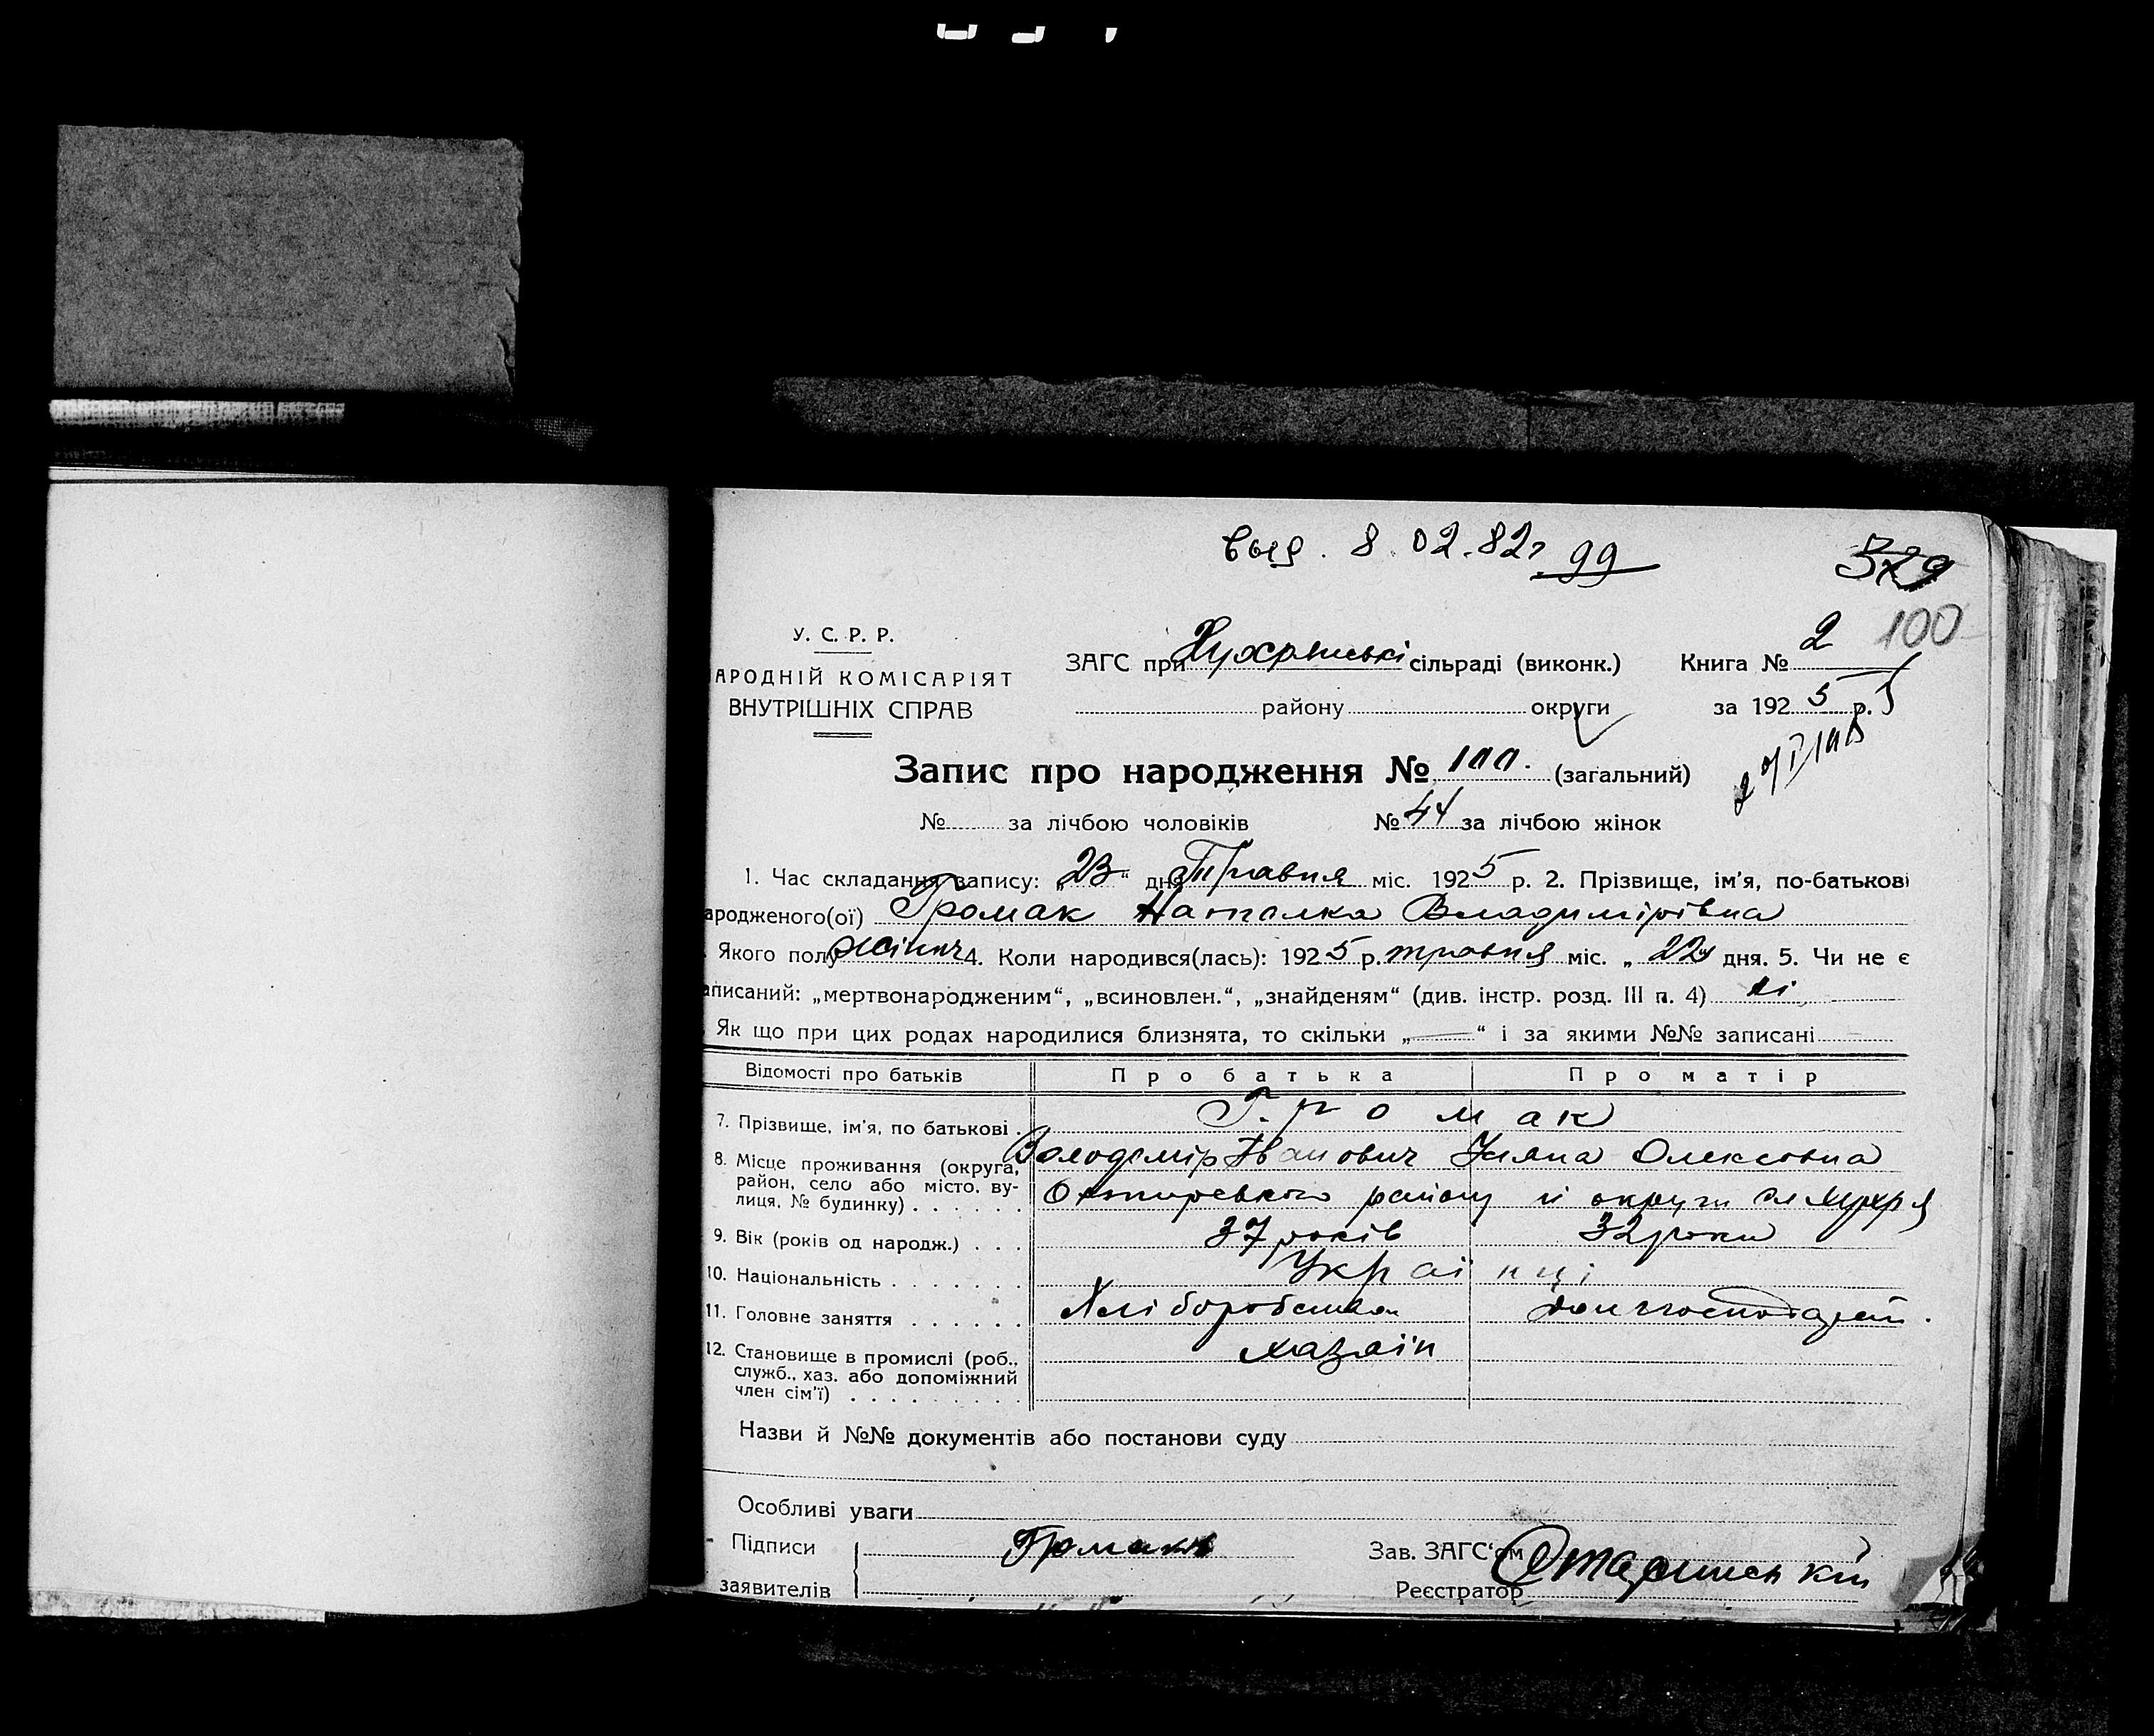 выд. 8.02.82г 99
379
100
У. С. Р. Р.
АРОДНІЙ КОМІСАРІЯТ
ВНУТРІШНІХ СПРАВ
ЗАГС при Хухрянські сільраді (виконк.) Книга № 2
району округи за 1925 р.
Запис про народження № 100. (загальний)
№ за лічбою чоловіків № 44 за лічбою жінок
1. Час складання запису: „23“ дня Травня міс. 1925 р. 2. Прізвище, ім'я, по-батькові
ародженого(ої) Громак Наталка Владимірівна
Якого полу жіноч 4. Коли народився(лась): 1925 р. травня міс. „22“ дня. 5. Чи не є
аписаний: „мертвонародженим“, „всиновлен.“, „знайденям“ (див. інстр. розд. III п. 4) ні
Як що при цих родах народилися близнята, то скільки „—“ і за якими №№ записані
Відомості про батьків Про батька Про матір
7. Прізвище, ім'я, по батькові . Громак
Володимір Іванович Уляна Олексовна
8. Місце проживання (округа,
район, село або місто, ву-
лиця, № будинку) . . . . . . Охтирського району й округи с. Хухря
9. Вік (років од народж.) . . . 37 років 32 роки
10. Національність . . . . . . . Українці
11. Головне заняття . . . . . . Хліборобство дом господарст.
12. Становище в промислі (роб.,
служб., хаз. або допоміжний
член сім'ї) . . . . . . . . . хазяїн
Назви й №№ документів або постанови суду
Особливі уваги
Підписи
заявителів Громакъ
Зав. ЗАГС'ом
Реєстратор